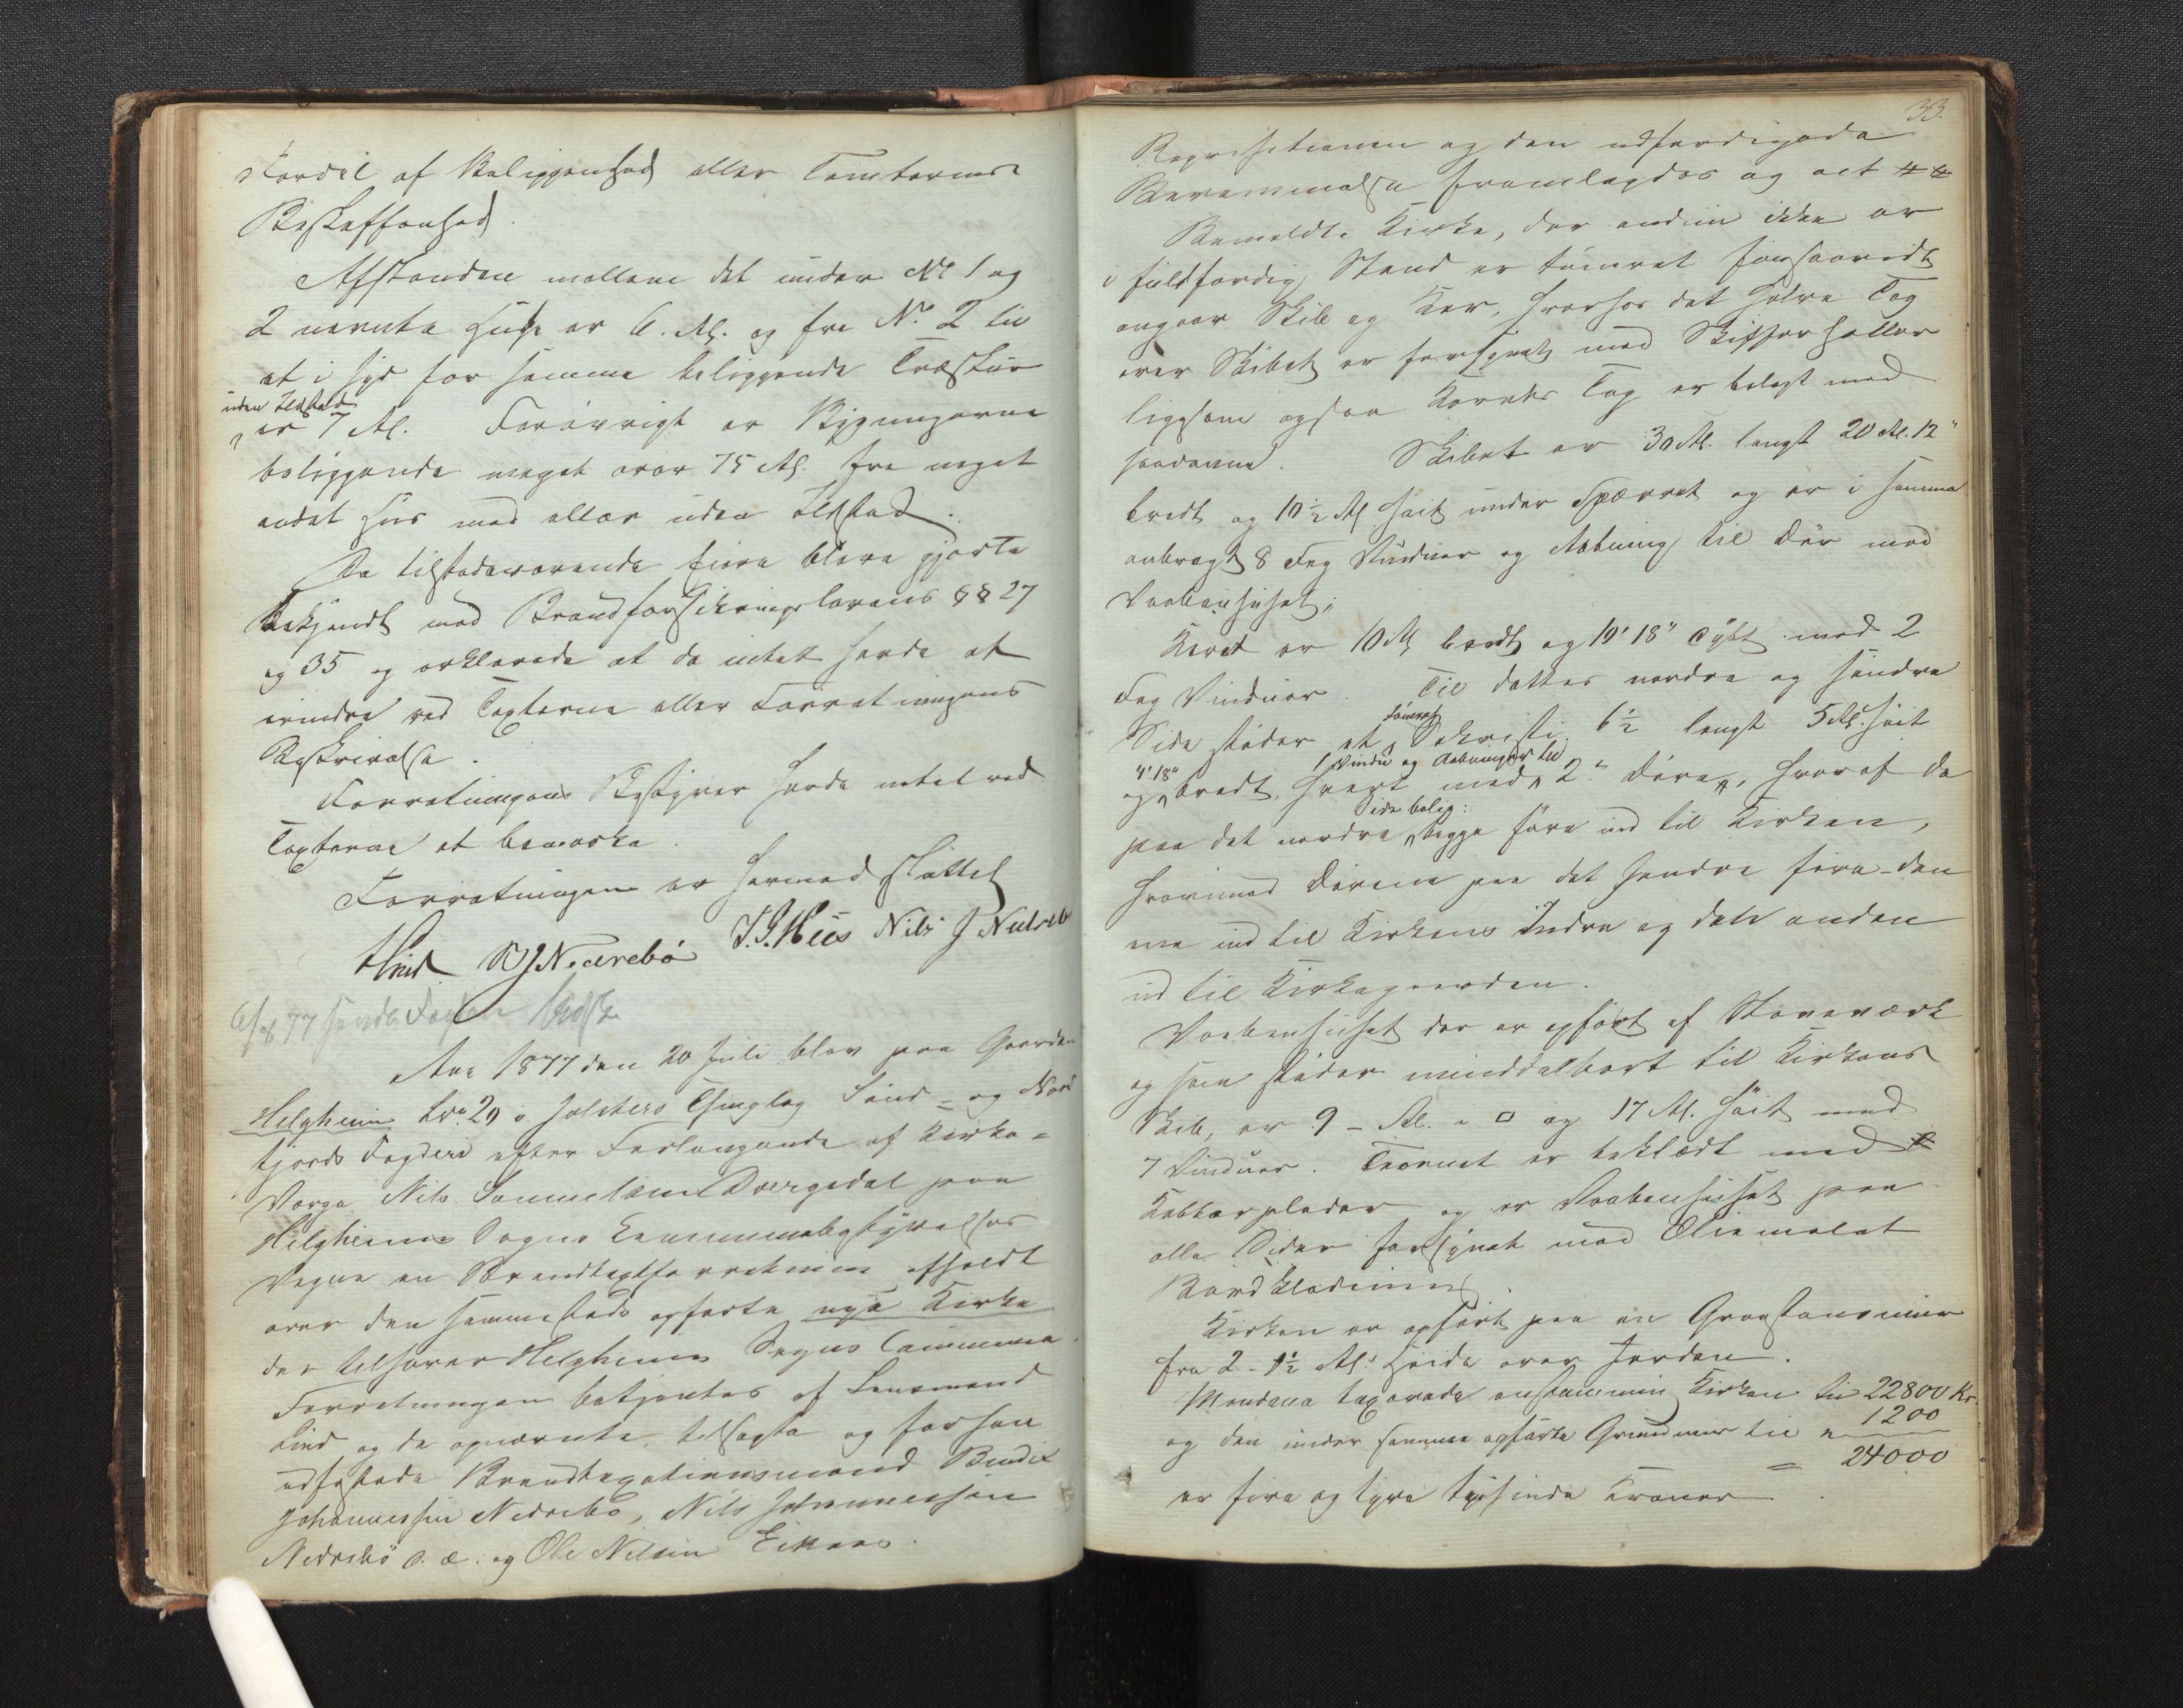 Fordel af Beliggenhed eller Tomternes
Beskaffenhed.
Afstanden mellem det under No 1 og
2 nævnte Huse er 6. Al. og fra No. 2 til
et i Syd for samme beliggende Træskur
uden Ildsted
er 7 Al. Forøvrigt er Bygningerne
beliggende meget over 75 Al. fra noget
andet Huus med eller uden Ildsted.
De tilstedeværende Eiere bleve gjorte
bekjendt med Brandforsikringslovens §§ 27
og 35 og erklærede at de intet havde at
erindre ved Taxterne eller Forretningens
Beskrivelse.
Forretningens Bestyrer havde intet ved
Taxterne at bemærke.
Forretningen er hermed sluttet
Lind B J Nedrebø J. J. Huus Nils J Nedrebø
6/8 77 sendt Fogden Udsk.
Aar 1877 den 20 Juli blev paa Gaarden
Helgheim Lno 29 i Jølsters Thinglag Sønd- og Nord
fjords Fogderi efter Forlangende af Kirke-
Værge Nils Samuelsen Dvergsdal paa
Helgheims Sogns Kommunebestyrelses
Vegne en Brandtaxtforretning afholdt
over den sammesteds opførte nye Kirke
der tilhører Helgheims Sogns Commune.
Forretningen betjentes af Lensmand
Lind og de opnævnte, tilsagte og forhen
edfæstede Brandtaxationsmænd Bendix
Johannessen Nedrebø, Nils Johannessen
Nedrebø d. æ. og Ole Nilsen Eikaas.
33.
Reqvisitionen og den udfærdigede
Berammelse fremlagdes og act
Bemeldte Kirke, der endnu ikke er
i fuldfærdig Stand er tømret forsaavidt
angaar Skib og Kor, hvorhos det halve Tag
over Skibet er forsynet med Skifferheller
ligesom ogsaa Korets Tag er belagt med
saadanne. Skibet er 30 Al. langt 20 Al. 12"
bredt og 10½ Al høit under Spærret og er i samme
anbragt 8 Fag Vinduer og Aabning til Dør mod
Vaabenhuset;
Koret er 10 Al bredt og 10' 18" dybt med 2
Fag Vinduer. Til dettes nordre og søndre
Side støder et tømret Sakristi 6½ langt 5 Al. høit
4' 18" 1 Vindu og Aabninger til
og bredt, hvert med 2de Døre, hvoraf de
Side belig:
paa det nordre begge føre ind til Kirken,
hvorimod Dørene paa det søndre føre den
ene ind til Kirkens Indre og den anden
ud til Kirkegaarden.
Vaabenhuset der er opført af Stoveværk
og som støder umiddelbart til Kirkens
Skib, er 9 - Al. i □ og 17 Al. høit med
7 Vinduer. Taarnet er beklædt med
Kobberplader og er Vaabenhuset paa
alle Sider forsynet med Oliemalet
Bordklædning.
Kirken er opført paa en Graastensmuur
fra 2 - 1½ Al.s Høide over Jorden.
Mændene taxerede enstemmig Kirken til 22800 Kr.
og den under samme opførte Grundmuur til " 1200
= 24000
er fire og tyve tusinde Kroner.